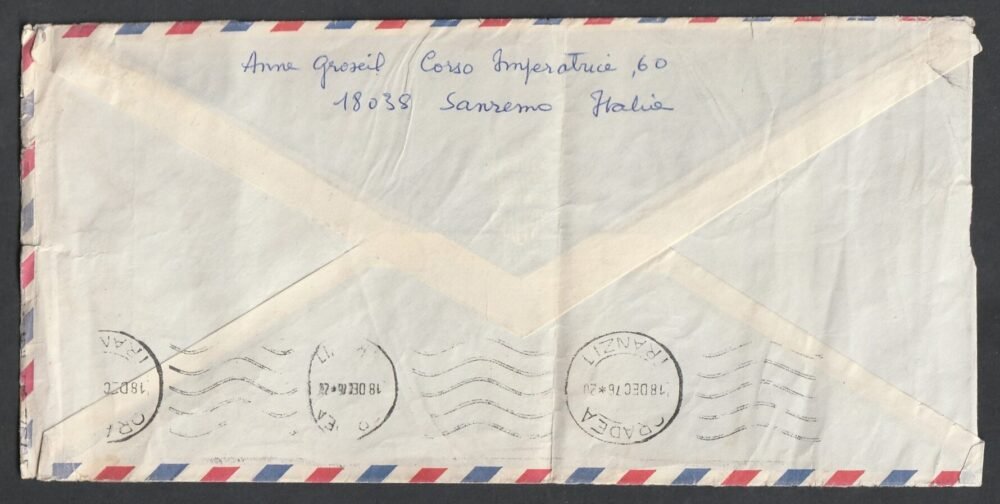 Anne Groseil Corso Imperatrice, 60
18038 Sanremo Italia
TRAN
18 DEC
ORA
18 DEC 76*20
EA
TRANZIT
18 DEC 76*20
ORADEA